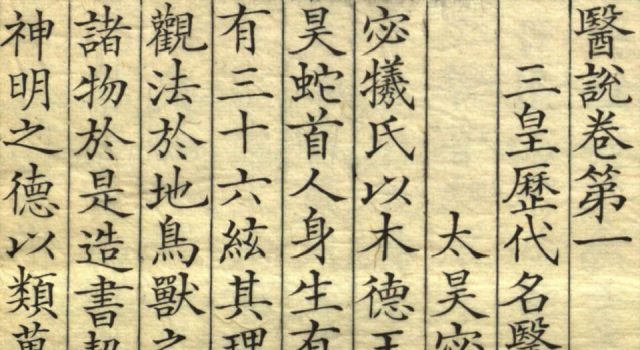 醫說卷第一
三皇歷代名醫
太昊宓
宓犧氏以木德王
昊蛇首人身生有
有三十六絃其理
觀法於地鳥獸之
諸物於是造書契
神明之德以類萬